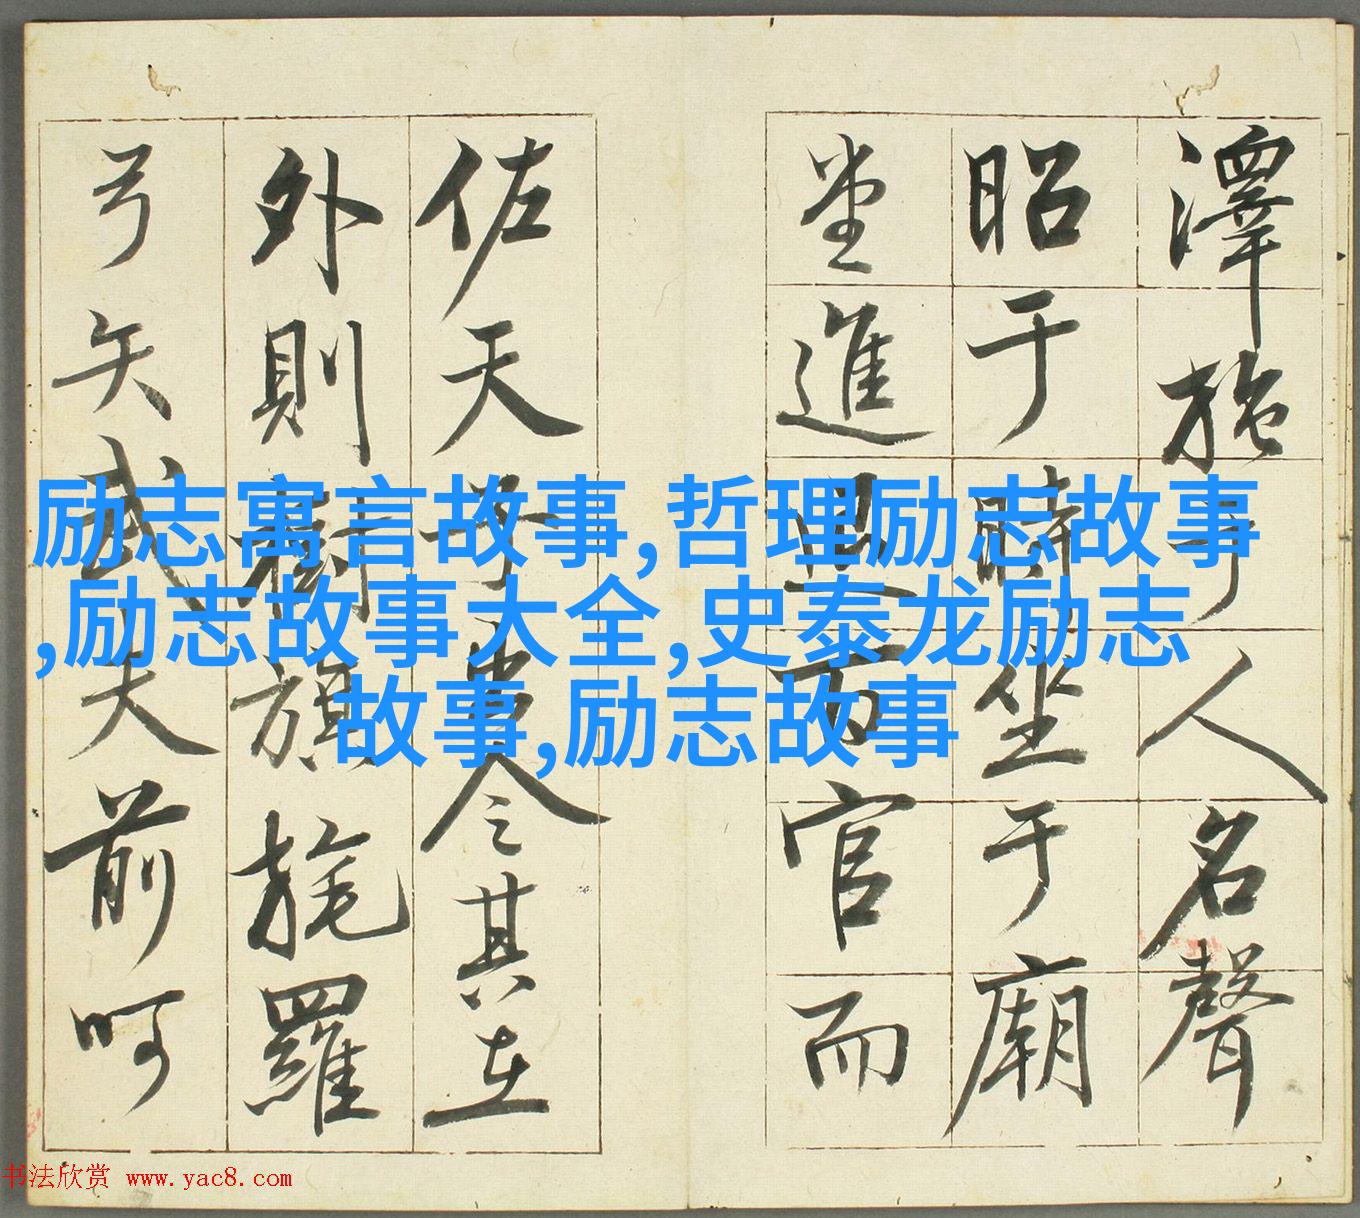 澤施于人名聲
昭于時坐于廟
堂進退百官而
佐天子令其在
外則樹旗旄羅
弓矢武夫前呵
励志寓言故事,哲理励志故事
,励志故事大全,史泰龙励志
故事,励志故事
书法欣赏 www.yac8.com